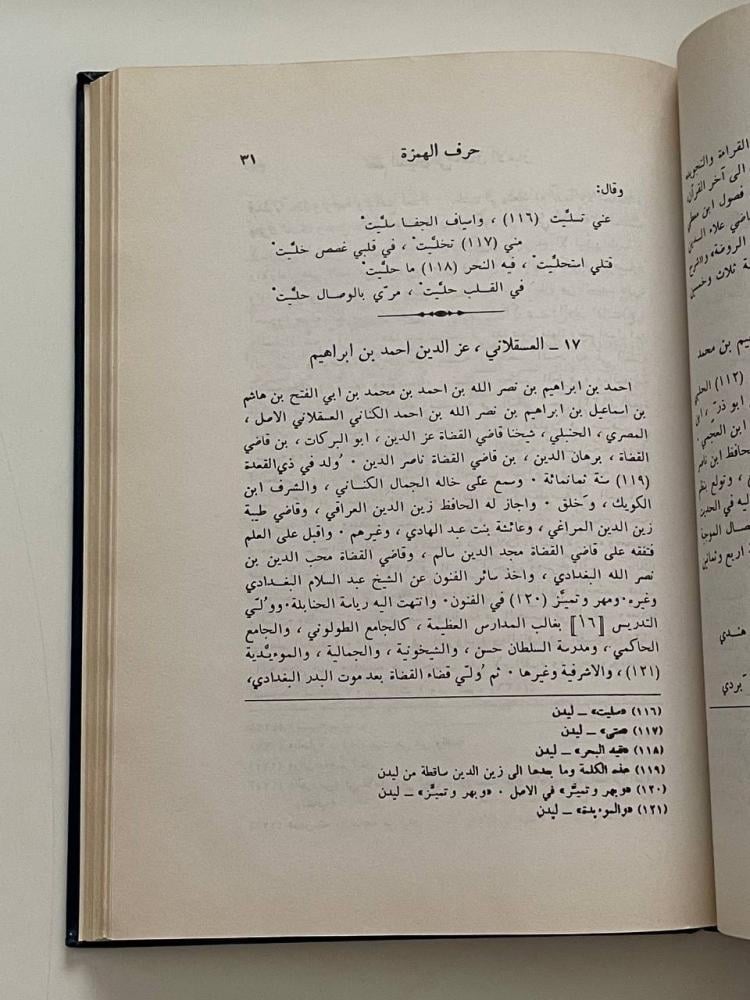 حرف الهمزة ٣١
وقال:
عني تسلَّيت (١١٦) ، واسياف الجفا سليَّتْ
مني (١١٧) تخليَّتْ ، في قلبي غصص خليَّتْ
قتلي استحليَّتْ ، فيه النحر (١١٨) ما حليَّتْ
في القلب حليَّتْ ، مرّي بالوصال حليَّتْ
١٧ ــ العسقلاني ، عز الدين احمد بن ابراهيم
احمد بن ابراهيم بن نصر الله بن احمد بن محمد بن ابي الفتح بن هاشم
بن اسماعيل بن ابراهيم بن نصر الله بن احمد الكناني العسقلاني الاصل ،
المصري ، الحنبلي ، شيخنا قاضي القضاة عز الدين ، ابو البركات ، بن قاضي
القضاة ، برهان الدين ، بن قاضي القضاة ناصر الدين . وُلد في ذي القعدة
(١١٩) سنة ثمانمائة . وسمع على خاله الجمال الكناني ، والشرف ابن
الكويك ، وخلق . واجاز له الحافظ زين الدين العراقي ، وقاضي طيبة
زين الدين المراغي ، وعائشة بنت عبد الهادي ، وغيرهم . واقبل على العلم
فتفقه على قاضي القضاة مجد الدين سالم ، وقاضي القضاة محب الدين بن
نصر الله البغدادي ، واخذ سائر الفنون عن الشيخ عبد السلام البغدادي
وغيره . ومهر وتميَّز (١٢٠) في الفنون . وانتهت اليه رياسة الحنابلة . ووُلّي
التدريس [١٦] بغالب المدارس العظيمة ، كالجامع الطولوني ، والجامع
الحاكمي ، ومدرسة السلطان حسن ، والشيخونية ، والجمالية ، والموءيدية
(١٢١) ، والاشرفية وغيرها . ثم وُلّي قضاء القضاة بعد موت البدر البغدادي،
(١١٦) «سليت» ــ ليدن
(١١٧) «متى» ــ ليدن
(١١٨) «قيه البحر» ــ ليدن
(١١٩) هذه الكلمة وما بعدها الى زين الدين ساقطة من ليدن
(١٢٠) «وبهر وتميَّز» في الاصل . «وبهر وتميَّز» ــ ليدن
(١٢١) «والموءيدة» ــ ليدن
القراءة والتجويد
الى آخر القرآن
فصول ابن معطي
الروضة» والشرح
ثلاث وخمسين
يم بن محمد
(١١٢) الحلبي
ابو ذرّ ، ابن
ابن العجمي .
الحافظ ابن ناصر
، وتولع بنظم
اربع وثمانين
هندي
بَردي